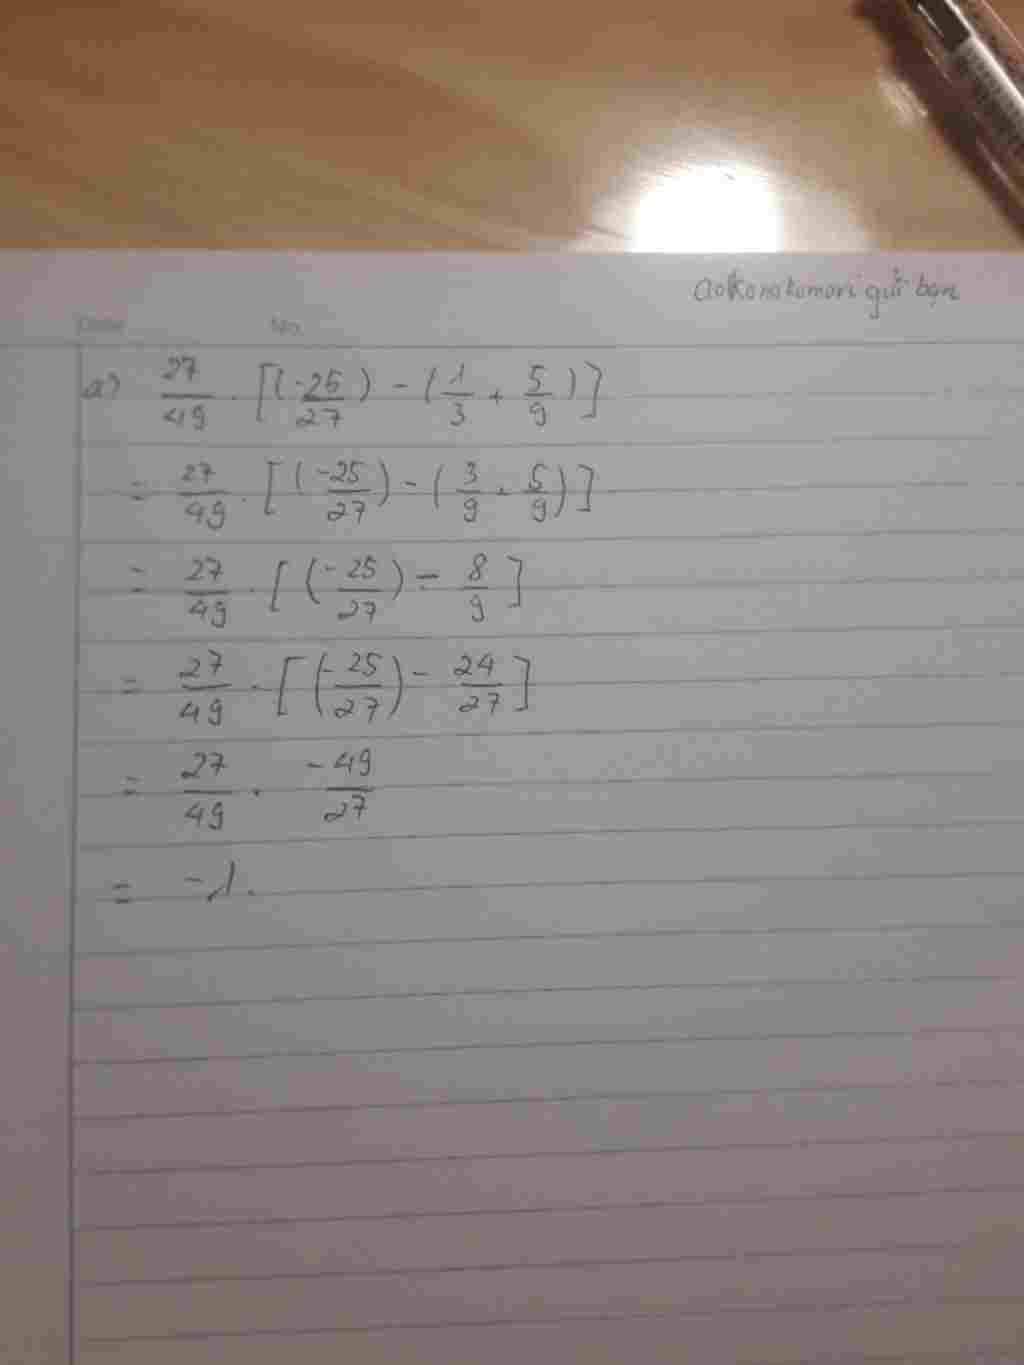 aoKonokomori gửi bạn
Date No.
a) 27/49 . [(-25/27) - (1/3 + 5/9)]
= 27/49 . [(-25/27) - (3/9 + 5/9)]
= 27/49 . [(-25/27) - 8/9]
= 27/49 . [(-25/27) - 24/27]
= 27/49 . -49/27
= -1.